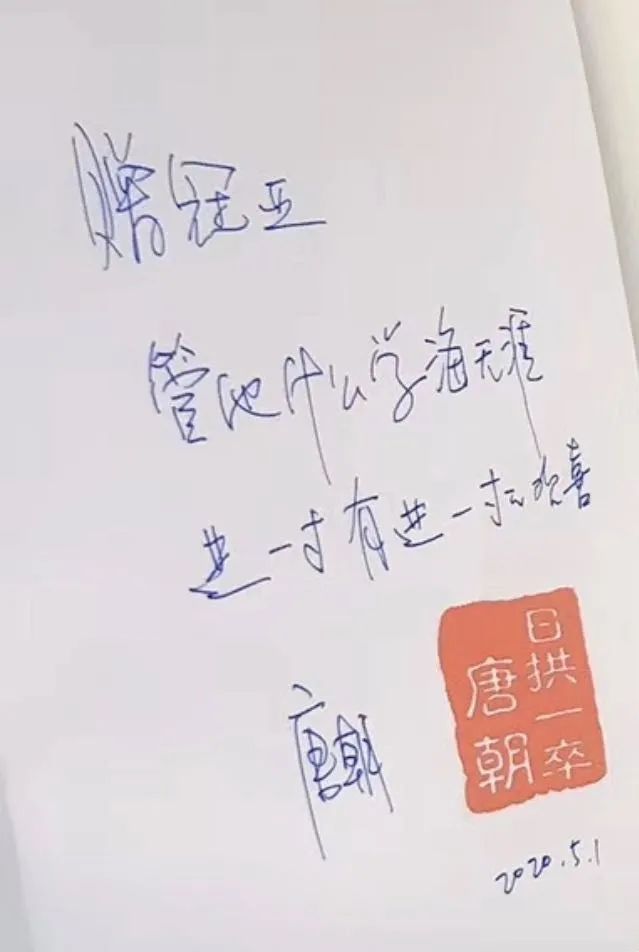 赠冠亚
管他什么学海无涯
进一寸有进一寸欢喜
唐朝
日拱一卒
唐朝
2020.5.1